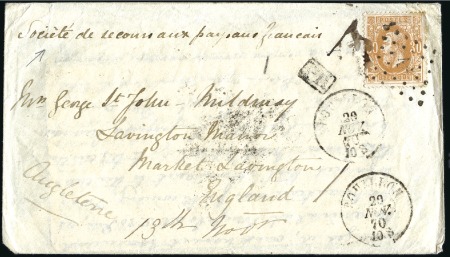 Société de secours aux paysans français
PD
Mrs George St John - Mildmay
Lavington Manor
Market Lavington
England
Angleterre
13th Novr
BOUILLON
29
NOV.
70
10 S
BOUILLON
29
NOV.
70
10 S